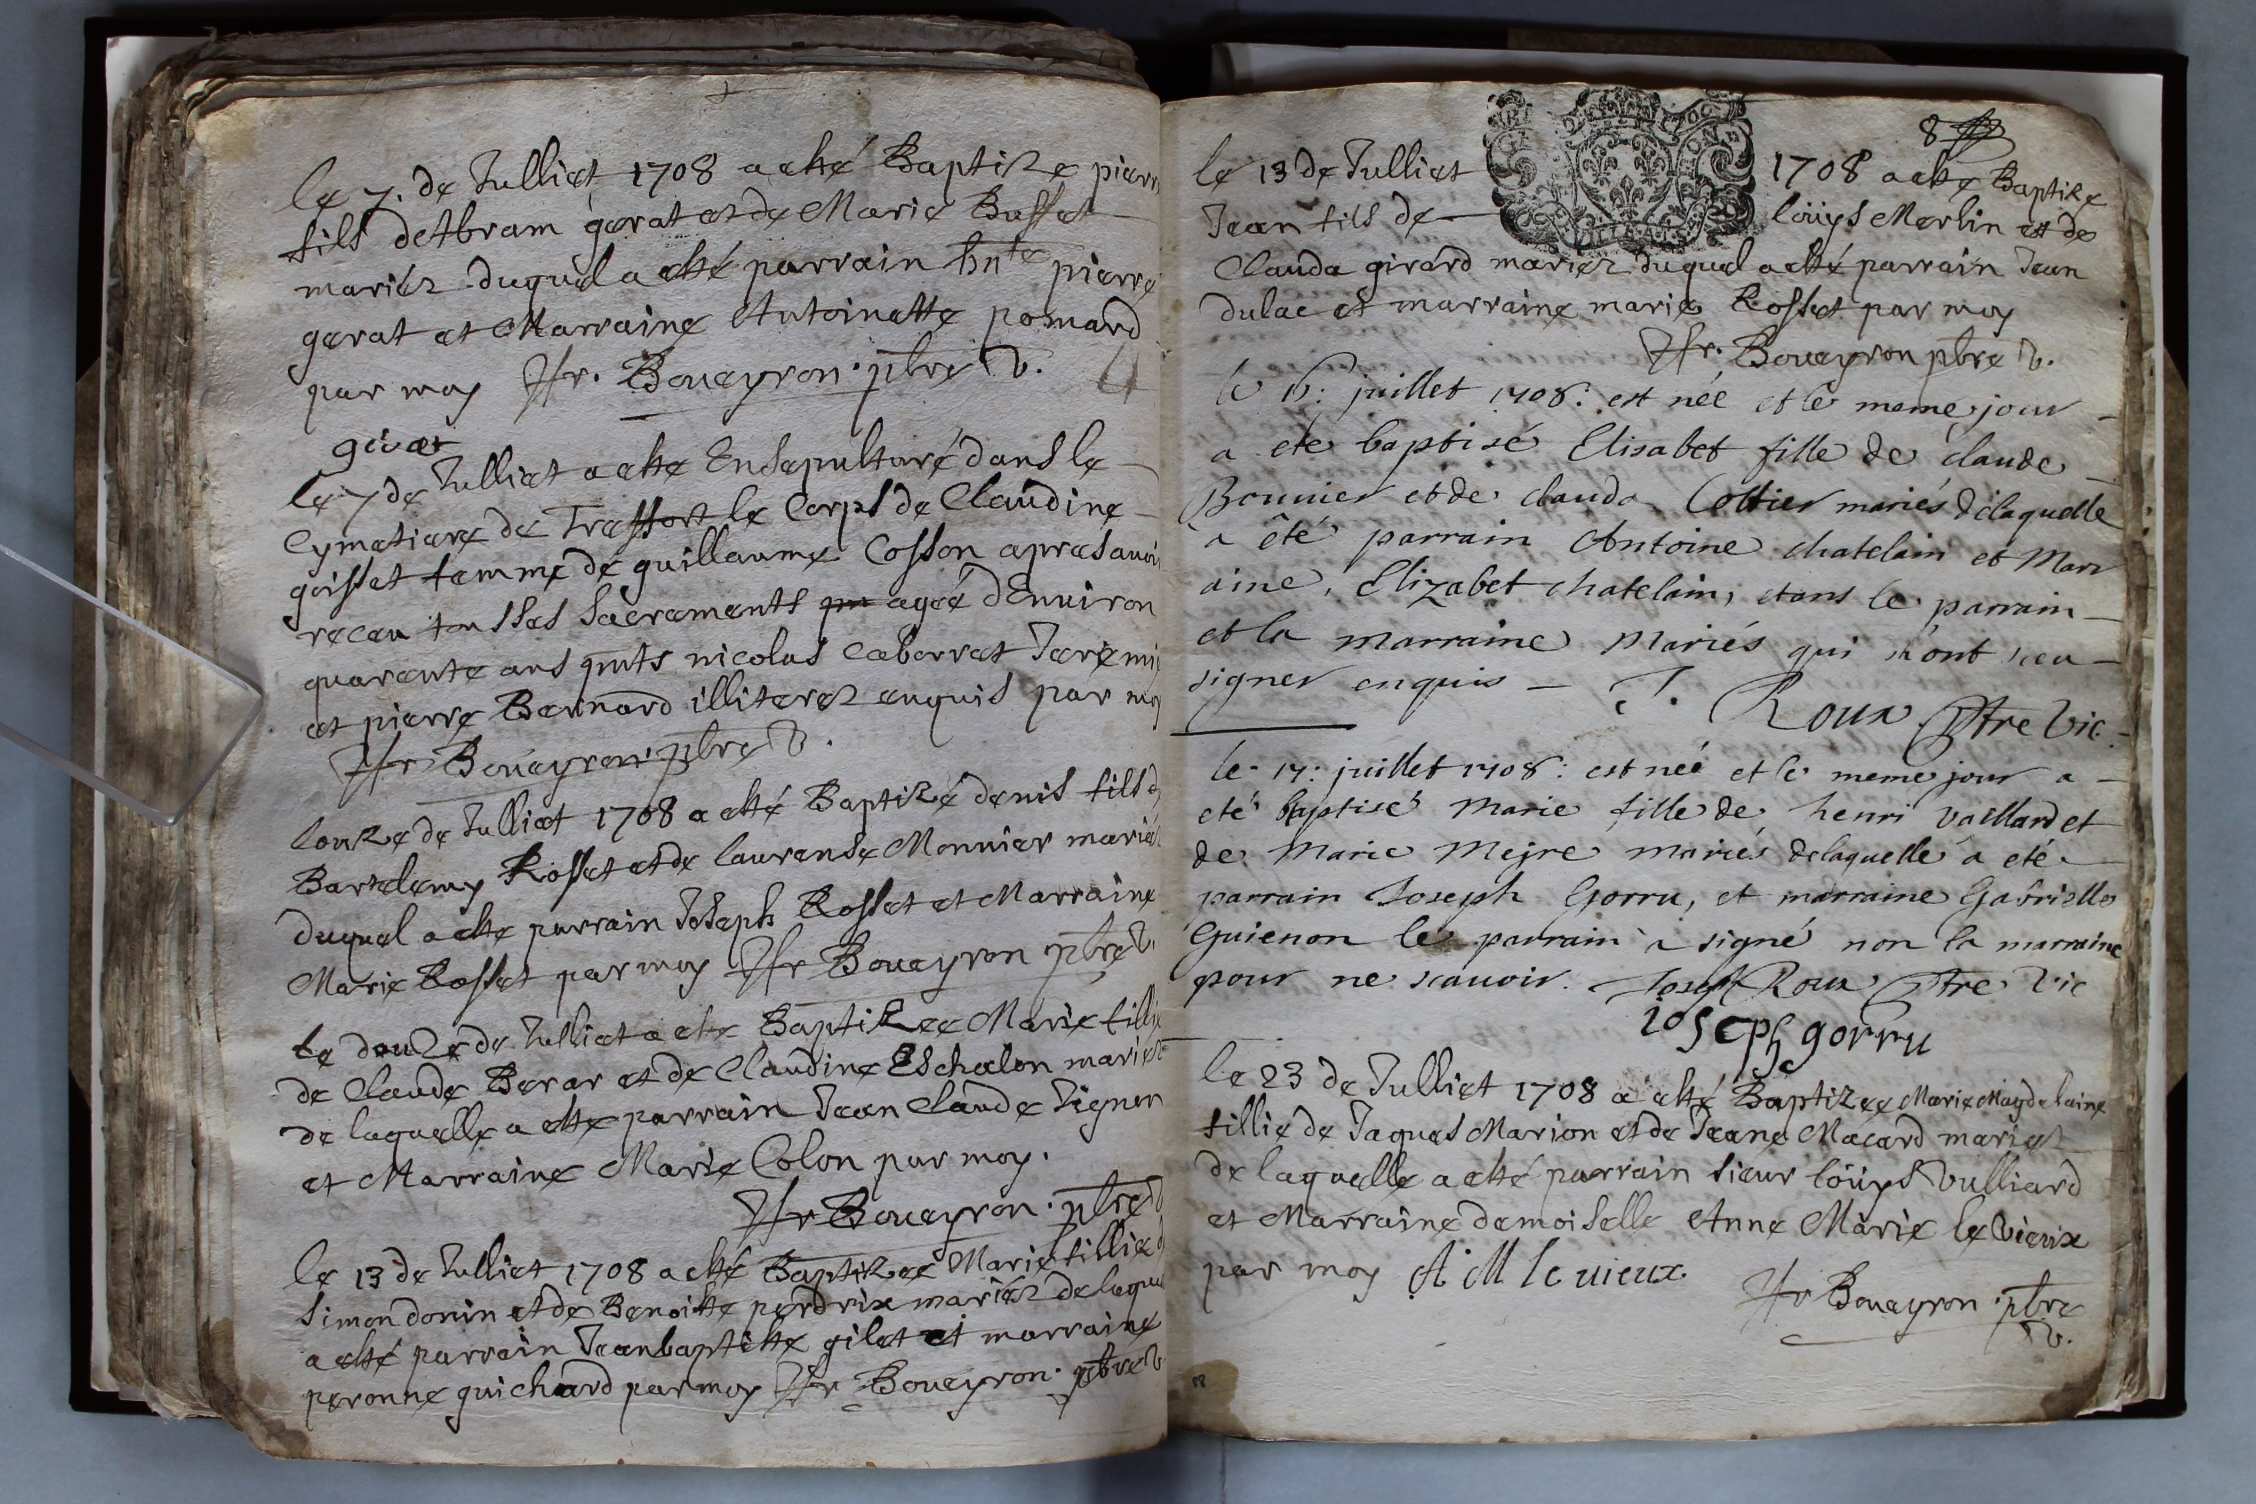 le 7. de Julliet 1708 a esté Baptize pierr
fils d'Abram gerat et de Marie Buffet
mariéz duquel a esté parrain hnte pierre
gerat et Marraine Antoinette pomard
par moy Ffr. Boueyron. pbre V.
givet
le 7 de Julliet a este Ensepulturé dans le
Cymetiere de Treffort le Corps de Claudine
goisset femme de guillaume Cosson apres avoir
receu tous ses sacrements agée d'Environ
quarante ans pnts nicolas Caborrat
et pierre Bernard illiterez enquis par moy
Ffr Boueyron. pbre V.
l'onze de Julliet 1708 a esté Baptizé denis fils d
Bartelemy Rosset et de laurense Monnier mariéz
duquel a este parrain Joseph Rosset et Marraine
Marie Rosset par moy Ffr Boueyron pbre V.
le douze de Julliet a este Baptizee Marie fillie
de Claude Berar et de Claudine Eschalon mariez
de laquelle a este parrain Jean Claude Tignon
et Marraine Marie Colon par moy.
Ffr Boueyron. pbre V
le 13 de Julliet 1708 a esté Baptizeé Marie fillie d
simon donin et de Benoitte perdrix mariéz de laquel
a esté parrain Jean baptiste gilet et marraine
peronne guichard par moy Ffr Boueyron. pbre V
8
le 13 de Julliet 1708 a este Baptize
Jean fils de loüys Merlin et de
Clauda girard mariez duquel a esté parrain Jean
dulac et marraine marie Rosset par moy
Ffr. Boueyron pbre V.
le 15: juillet 1708: est née et le meme jour
a ete baptisé Elisabet fille de claude
Bounier et de clauda Cottier mariés de laquelle
a été parrain Antoine chatelain et Marr
aine, Elizabet chatelain, etans le parrain
et la marraine Mariés qui n'ont sceu
signer enquis J. Roux Ptre Vic.
le 17: juillet 1708: est née et le meme jour a
eté baptisé Marie fille de henri vaillard et
de Marie Mejre Mariés de laquelle a eté
parrain Joseph Gorru, et marraine Gabrielle
Guienon le parrain a signé non la marraine
pour ne scauoir. Joseph Roux Ptre Vic
ioseph gorru
le 23 de Julliet 1708 a esté Baptizee Marie Magdelaine
fillie de Jaques Marion et de Jeane Macard mariez
de laquelle a esté parrain sieur loüys Vulliard
et Marraine demoiselle Anne Marie le Vieux
par moy A M le uieux
Ffr Boueyron. pbre
V.